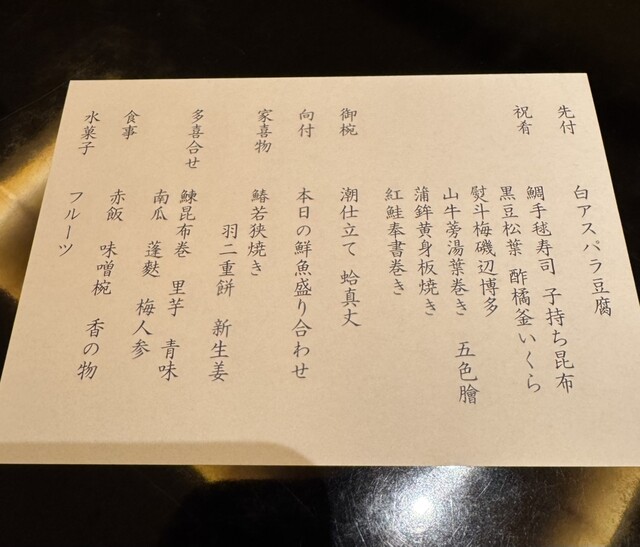 先付　白アスパラ豆腐
祝肴　鯛手毬寿司　子持ち昆布
黒豆松葉　酢橘釜いくら
熨斗梅磯辺博多
山牛蒡湯葉巻き　五色膾
蒲鉾黄身板焼き
紅鮭奉書巻き
御椀　潮仕立て　蛤真丈
向付　本日の鮮魚盛り合わせ
家喜物　鰆若狭焼き
羽二重餅　新生姜
多喜合せ　鰊昆布巻　里芋　青味
南瓜　蓬麩　梅人参
食事　赤飯　味噌椀　香の物
水菓子　フルーツ